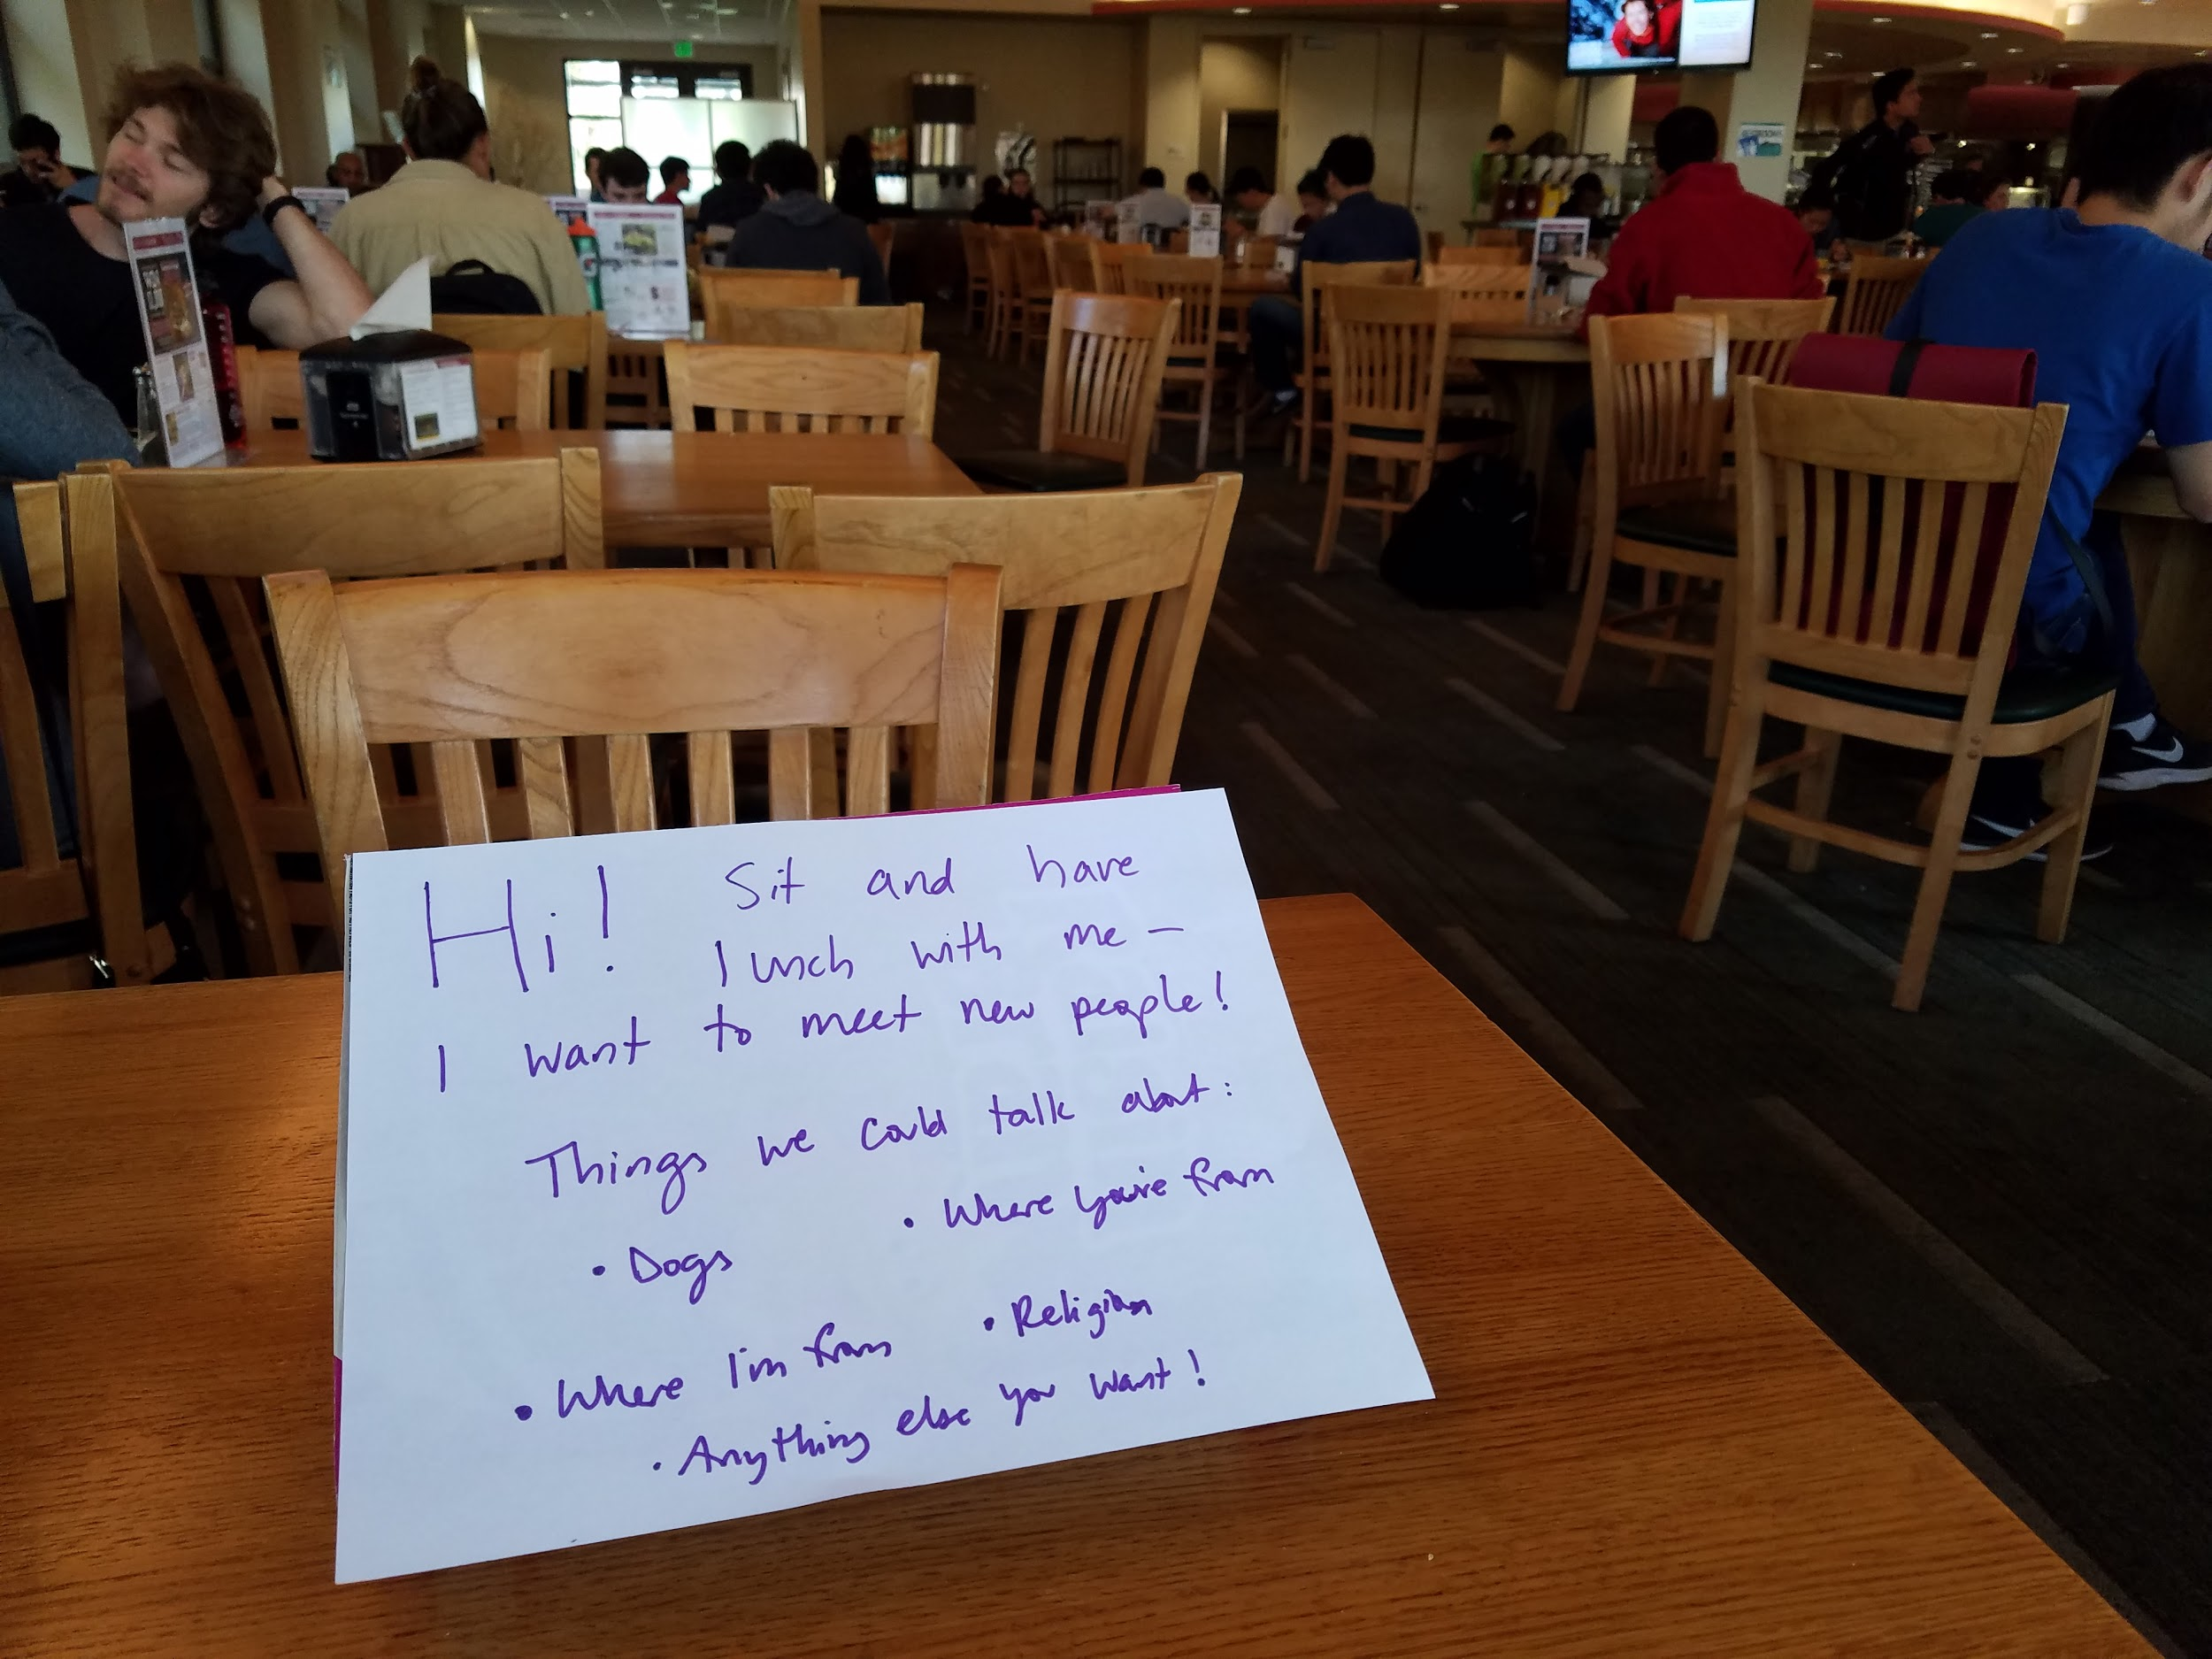 Hi! Sit and have
lunch with me —
I want to meet new people!
Things we could talk about:
• Dogs
• Where you're from
• Where I'm from
• Religion
• Anything else you want!